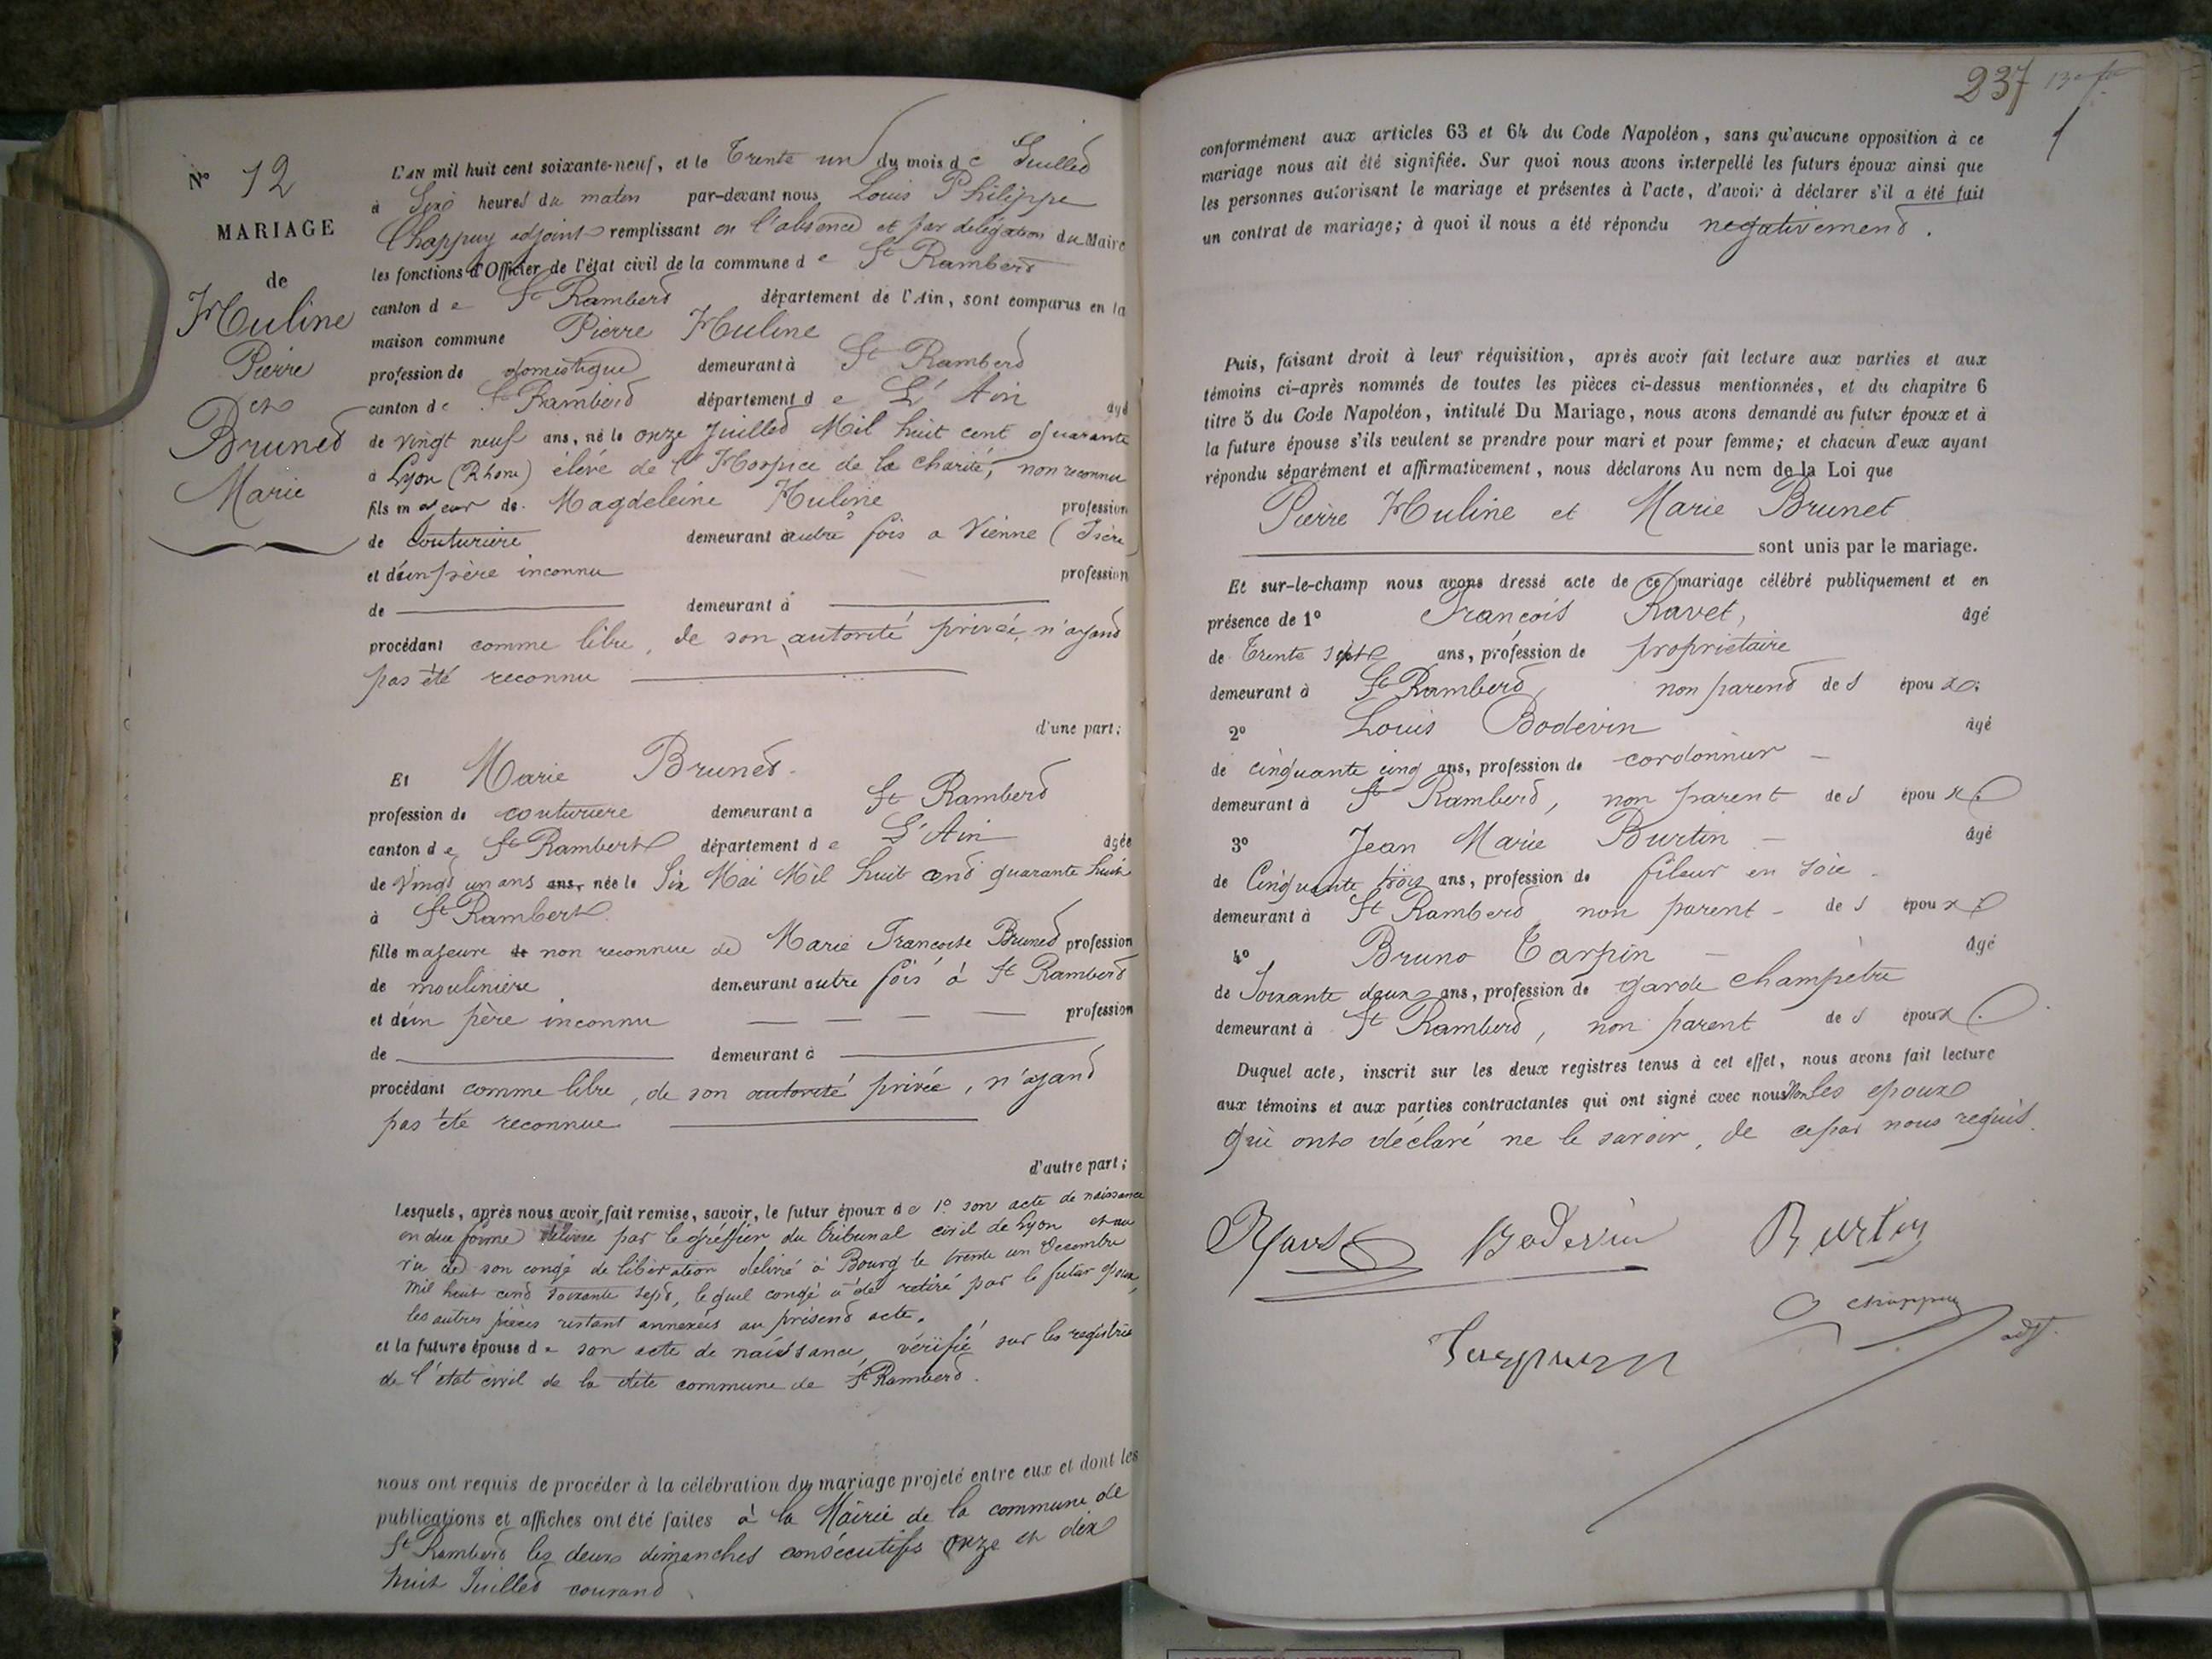 N° 12
MARIAGE
de
Huline
Pierre
et
Brunet
Marie
L'AN mil huit cent soixante-neuf, et le Trente un du mois de Juillet
à Six heures du matin par-devant nous Louis Philippe
Chappuy adjoint remplissant en l'absence et par délégation du Maire
les fonctions d'Officier de l'état civil de la commune de St Rambert
canton de St Rambert département de l'Ain, sont comparus en la
maison commune Pierre Huline
profession de domestique demeurant à St Rambert
canton de St Rambert département de L'Ain âgé
de vingt neuf ans, né le onze Juillet Mil huit cent quarante
à Lyon (Rhône) élevé de l'Hospice de la charité, non reconnu
fils majeur de Magdeleine Huline profession
de couturière demeurant autre fois a Vienne (Isère)
et d'un père inconnu profession
de demeurant à
procédant comme libre, de son autorité privée, n'ayant
pas été reconnu
d'une part;
Et Marie Brunet
profession de couturière demeurant à St Rambert
canton de St Rambert département de L'Ain âgée
de Vingt un ans ans, née le Six Mai Mil huit cent quarante huit
à St Rambert
fille majeure de non reconnue de Marie Francoise Brunet profession
de moulinière demeurant autre fois à St Rambert
et d'un père inconnu profession
de demeurant à
procédant comme libre, de son autorité privée, n'ayant
pas été reconnue
d'autre part;
Lesquels, après nous avoir fait remise, savoir, le futur époux de 1° son acte de naissance
en due forme délivré par le gréffier du tribunal civil de Lyon et au
vu de son congé de libération délivré à Bourg le trente un Decembre
mil huit cent soixante sept, lequel congé a été retiré par le futur époux,
les autres pièces restant annexées au présent acte.
et la future épouse de son acte de naissance, vérifié sur les registres
de l'état civil de la dite commune de St Rambert.
nous ont requis de procéder à la célébration du mariage projeté entre eux et dont les
publications et affiches ont été faites à la Mairie de la commune de
St Rambert les deux dimanches consécutifs onze et dix
huit Juillet courant
237
conformément aux articles 63 et 64 du Code Napoléon, sans qu'aucune opposition à ce
mariage nous ait été signifiée. Sur quoi nous avons interpellé les futurs époux ainsi que
les personnes autorisant le mariage et présentes à l'acte, d'avoir à déclarer s'il a été fait
un contrat de mariage; à quoi il nous a été répondu negativement.
Puis, faisant droit à leur réquisition, après avoir fait lecture aux parties et aux
témoins ci-après nommés de toutes les pièces ci-dessus mentionnées, et du chapitre 6
titre 5 du Code Napoléon, intitulé Du Mariage, nous avons demandé au futur époux et à
la future épouse s'ils veulent se prendre pour mari et pour femme; et chacun d'eux ayant
répondu séparément et affirmativement, nous déclarons Au nom de la Loi que
Pierre Huline et Marie Brunet
sont unis par le mariage.
Et sur-le-champ nous avons dressé acte de ce mariage célébré publiquement et en
présence de 1° Francois Ravet, âgé
de Trente sept ans, profession de propriétaire
demeurant à St Rambert, non parent des époux.
2° Louis Bodevin âgé
de cinquante cinq ans, profession de cordonnier
demeurant à St Rambert, non parent des époux.
3° Jean Marie Burtin âgé
de Cinquante trois ans, profession de fileur en soie
demeurant à St Rambert non parent des époux
4° Bruno Tarpin âgé
de Soixante deux ans, profession de garde champêtre
demeurant à St Rambert, non parent des époux.
Duquel acte, inscrit sur les deux registres tenus à cet effet, nous avons fait lecture
aux témoins et aux parties contractantes qui ont signé avec nous non les epoux
qui ont déclaré ne le savoir, de ce par nous requis.
Bodevin
Burtin
Chappuy
adjt.